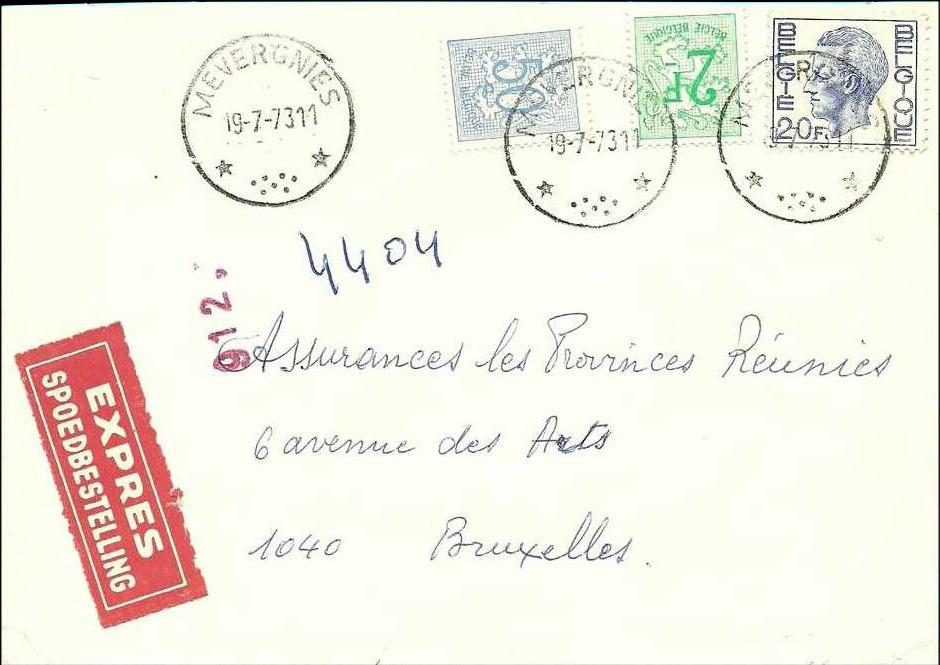 MEVERGNIES
19-7-7311
50
BELGIE BELGIQUE
2F
MEVERGNIES
19-7-7311
BELGIE
BELGIQUE
20F
9-7-7311
4404
912
Assurances les Provinces Réunies
6 avenue des Arts
1040 Bruxelles.
EXPRES
SPOEDBESTELLING